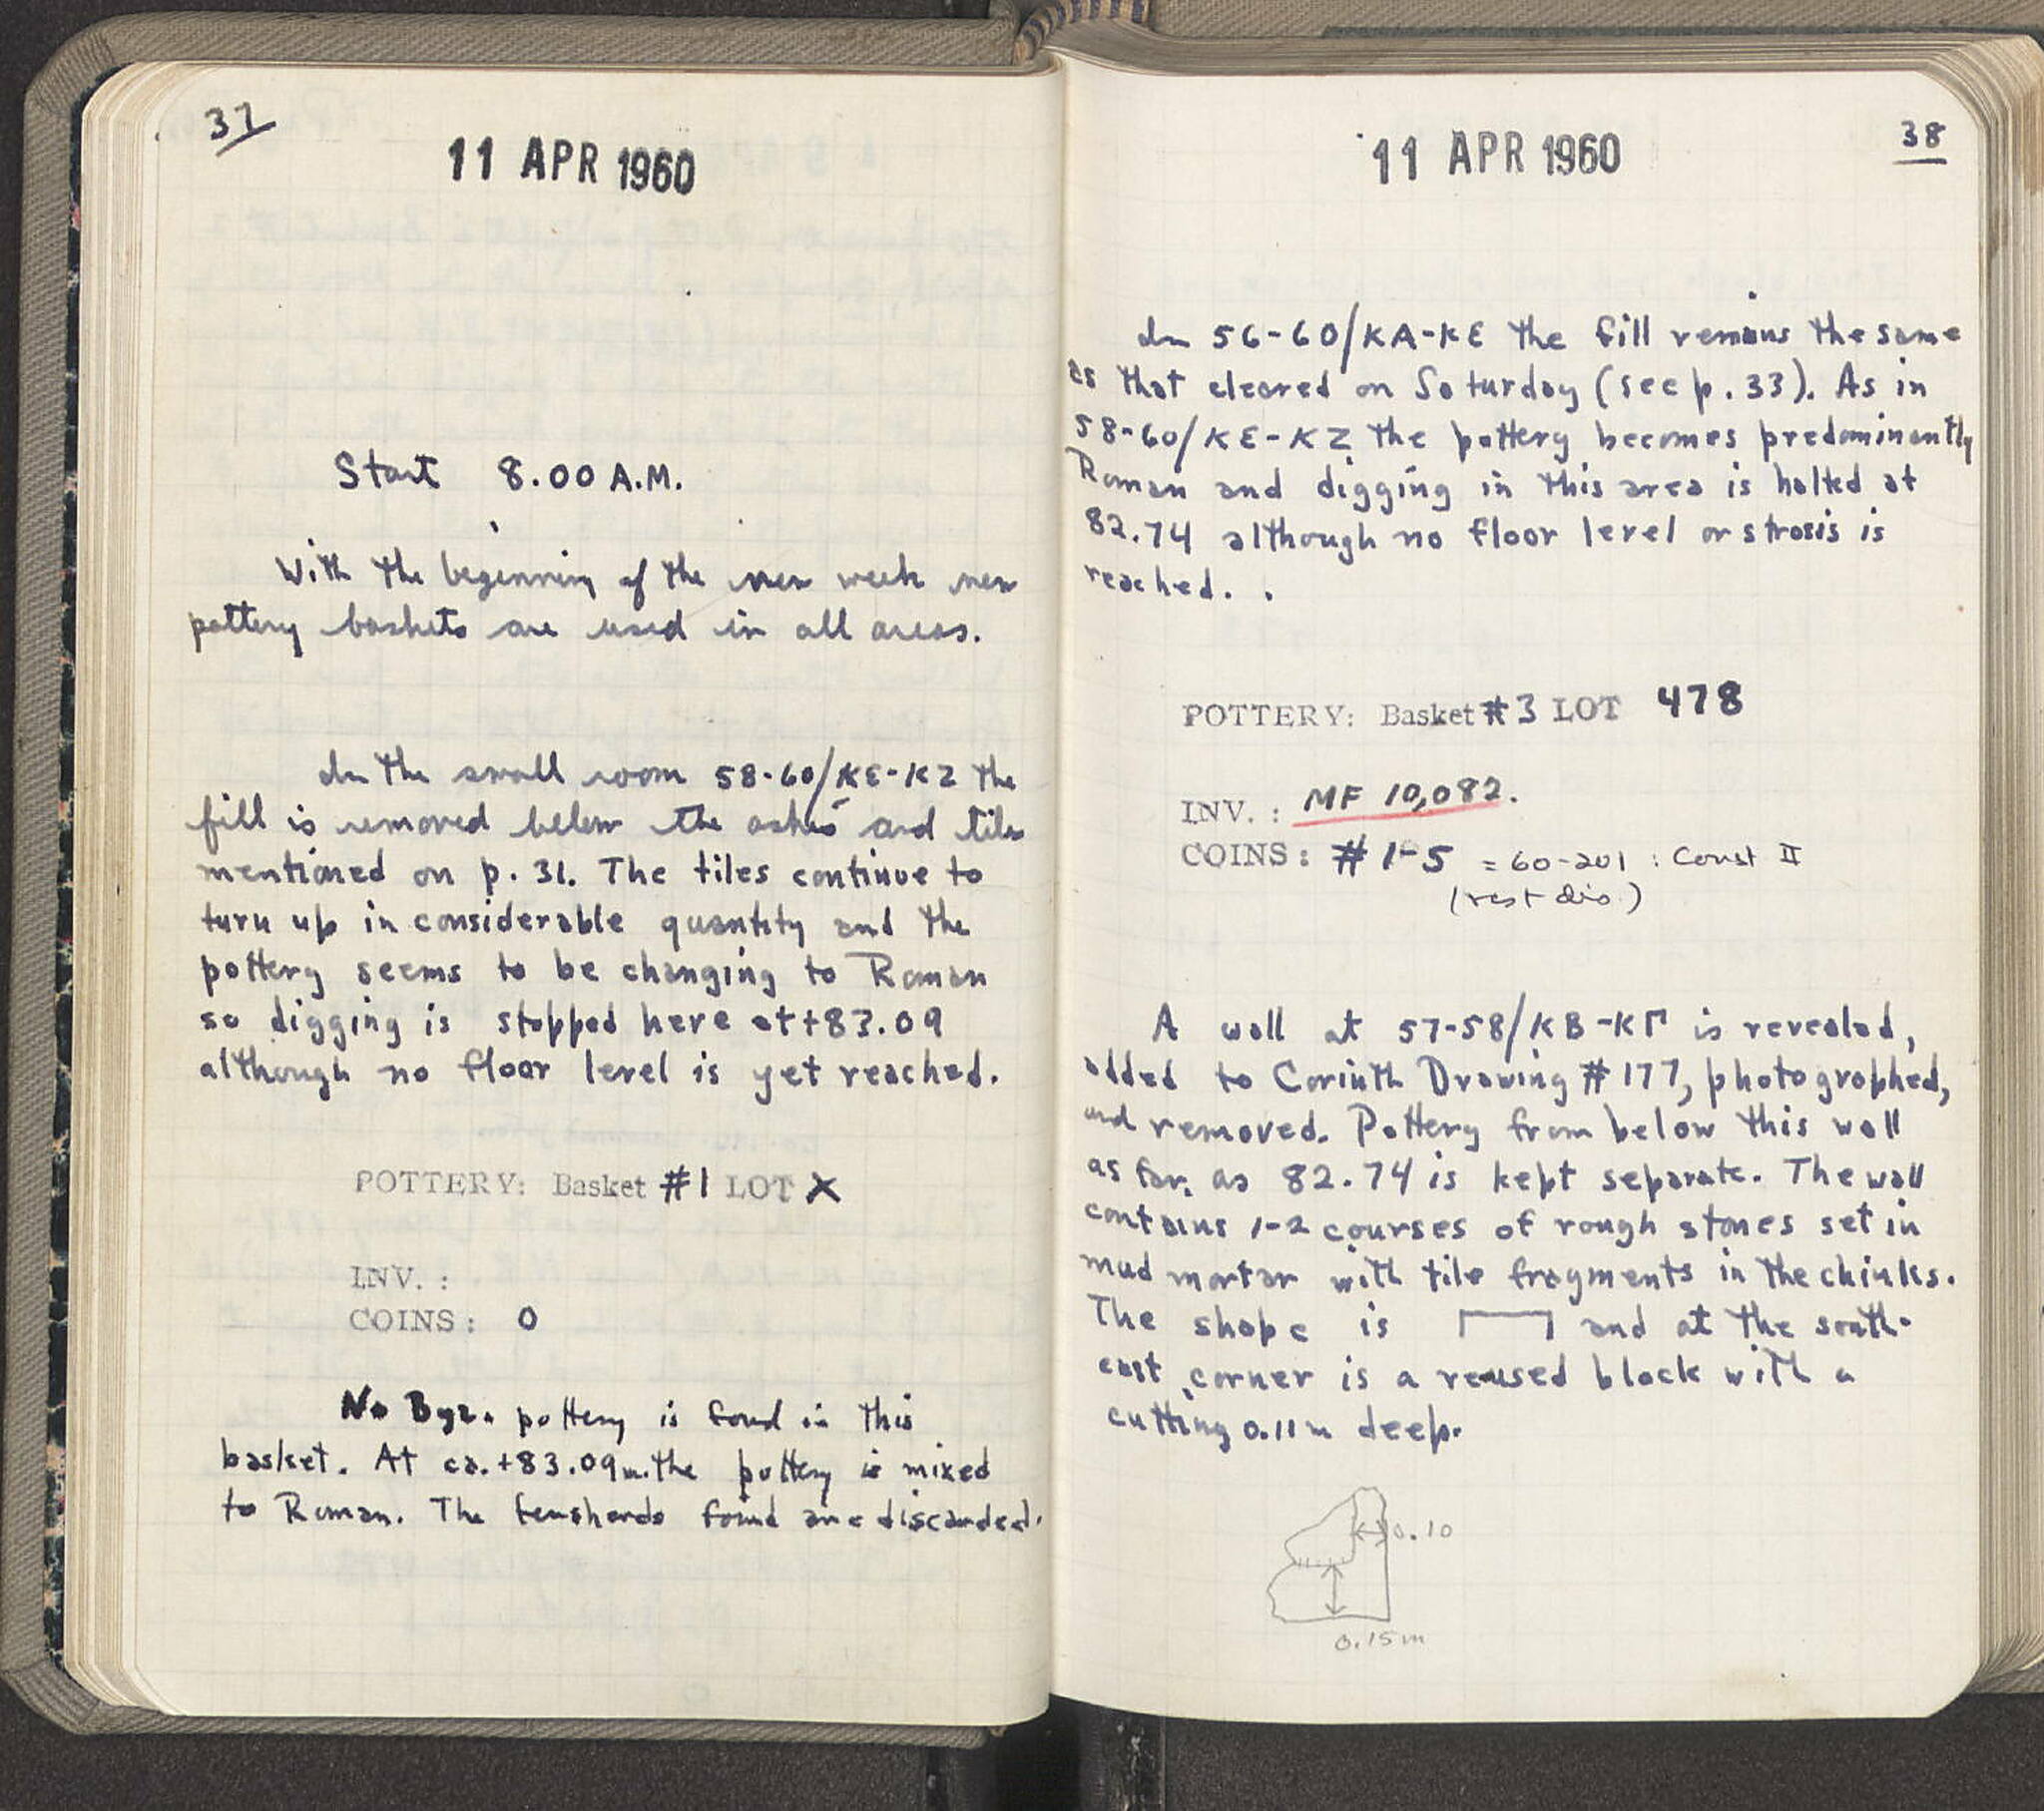 37
11 APR 1960
Start 8.00 A.M.
With the beginning of the new week new
pottery baskets are used in all areas.
In the small room 58-60/KE-KZ the
fill is removed below the ashes and tile
mentioned on p. 31. The tiles continue to
turn up in considerable quantity and the
pottery seems to be changing to Roman
so digging is stopped here at +83.09
although no floor level is yet reached.
POTTERY: Basket #1 LOT X
INV. :
COINS: 0
No Byz. pottery is found in this
basket. At ca. +83.09m. the pottery is mixed
to Roman. The few sherds found are discarded.
38
11 APR 1960
In 56-60/KA-KE the fill remains the same
as that cleared on Saturday (see p. 33). As in
58-60/KE-KZ the pottery becomes predominantly
Roman and digging in this area is halted at
82.74 although no floor level or strosis is
reached.
POTTERY: Basket #3 LOT 478
INV. : MF 10,082.
COINS: #1-5 = 60-201 : Const II
(rest dis.)
A wall at 57-58/KB-KΓ is revealed,
added to Corinth Drawing #177, photographed,
and removed. Pottery from below this wall
as far as 82.74 is kept separate. The wall
contains 1-2 courses of rough stones set in
mud mortar with tile fragments in the chinks.
The shape is and at the south-
east corner is a reused block with a
cutting 0.11m deep.
0.10
0.15m